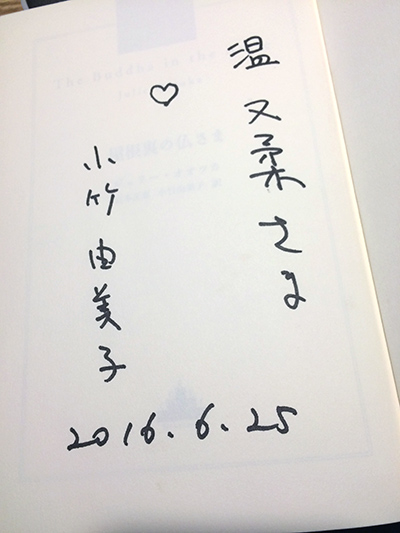 温又柔さま
♡
小竹由美子
2016.6.25
The Buddha in the
屋根裏の仏さま